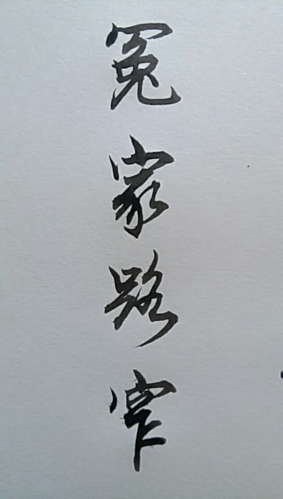 冤家路窄